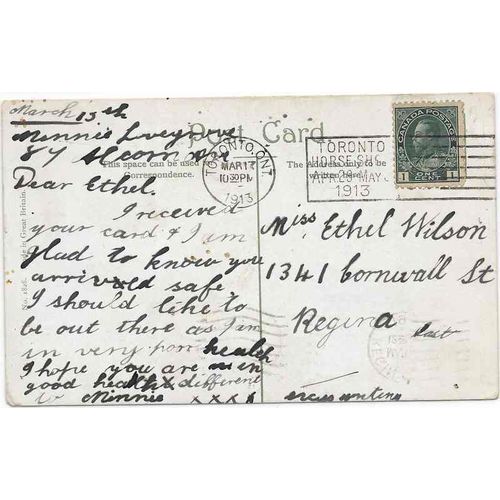 March 13th
Minnie
87
Post Card
This space can be used for Correspondence.
The Address only to be written here.
TORONTO, ONT.
MAR 17
10 30 PM
1913
TORONTO
HORSE SHOW
APR 29 MAY 3
1913
CANADA POSTAGE
1 ONE CENT 1
Dear Ethel.
I received
your card & I am
glad to know you
arrived safe
I should like to
be out there as I am
in very poor health
I hope you are in
good health different
to Minnie
x x x x
Miss Ethel Wilson
1341 Cornwall St
Regina
Sask
excuse writing
No. 1826. Made in Great Britain.